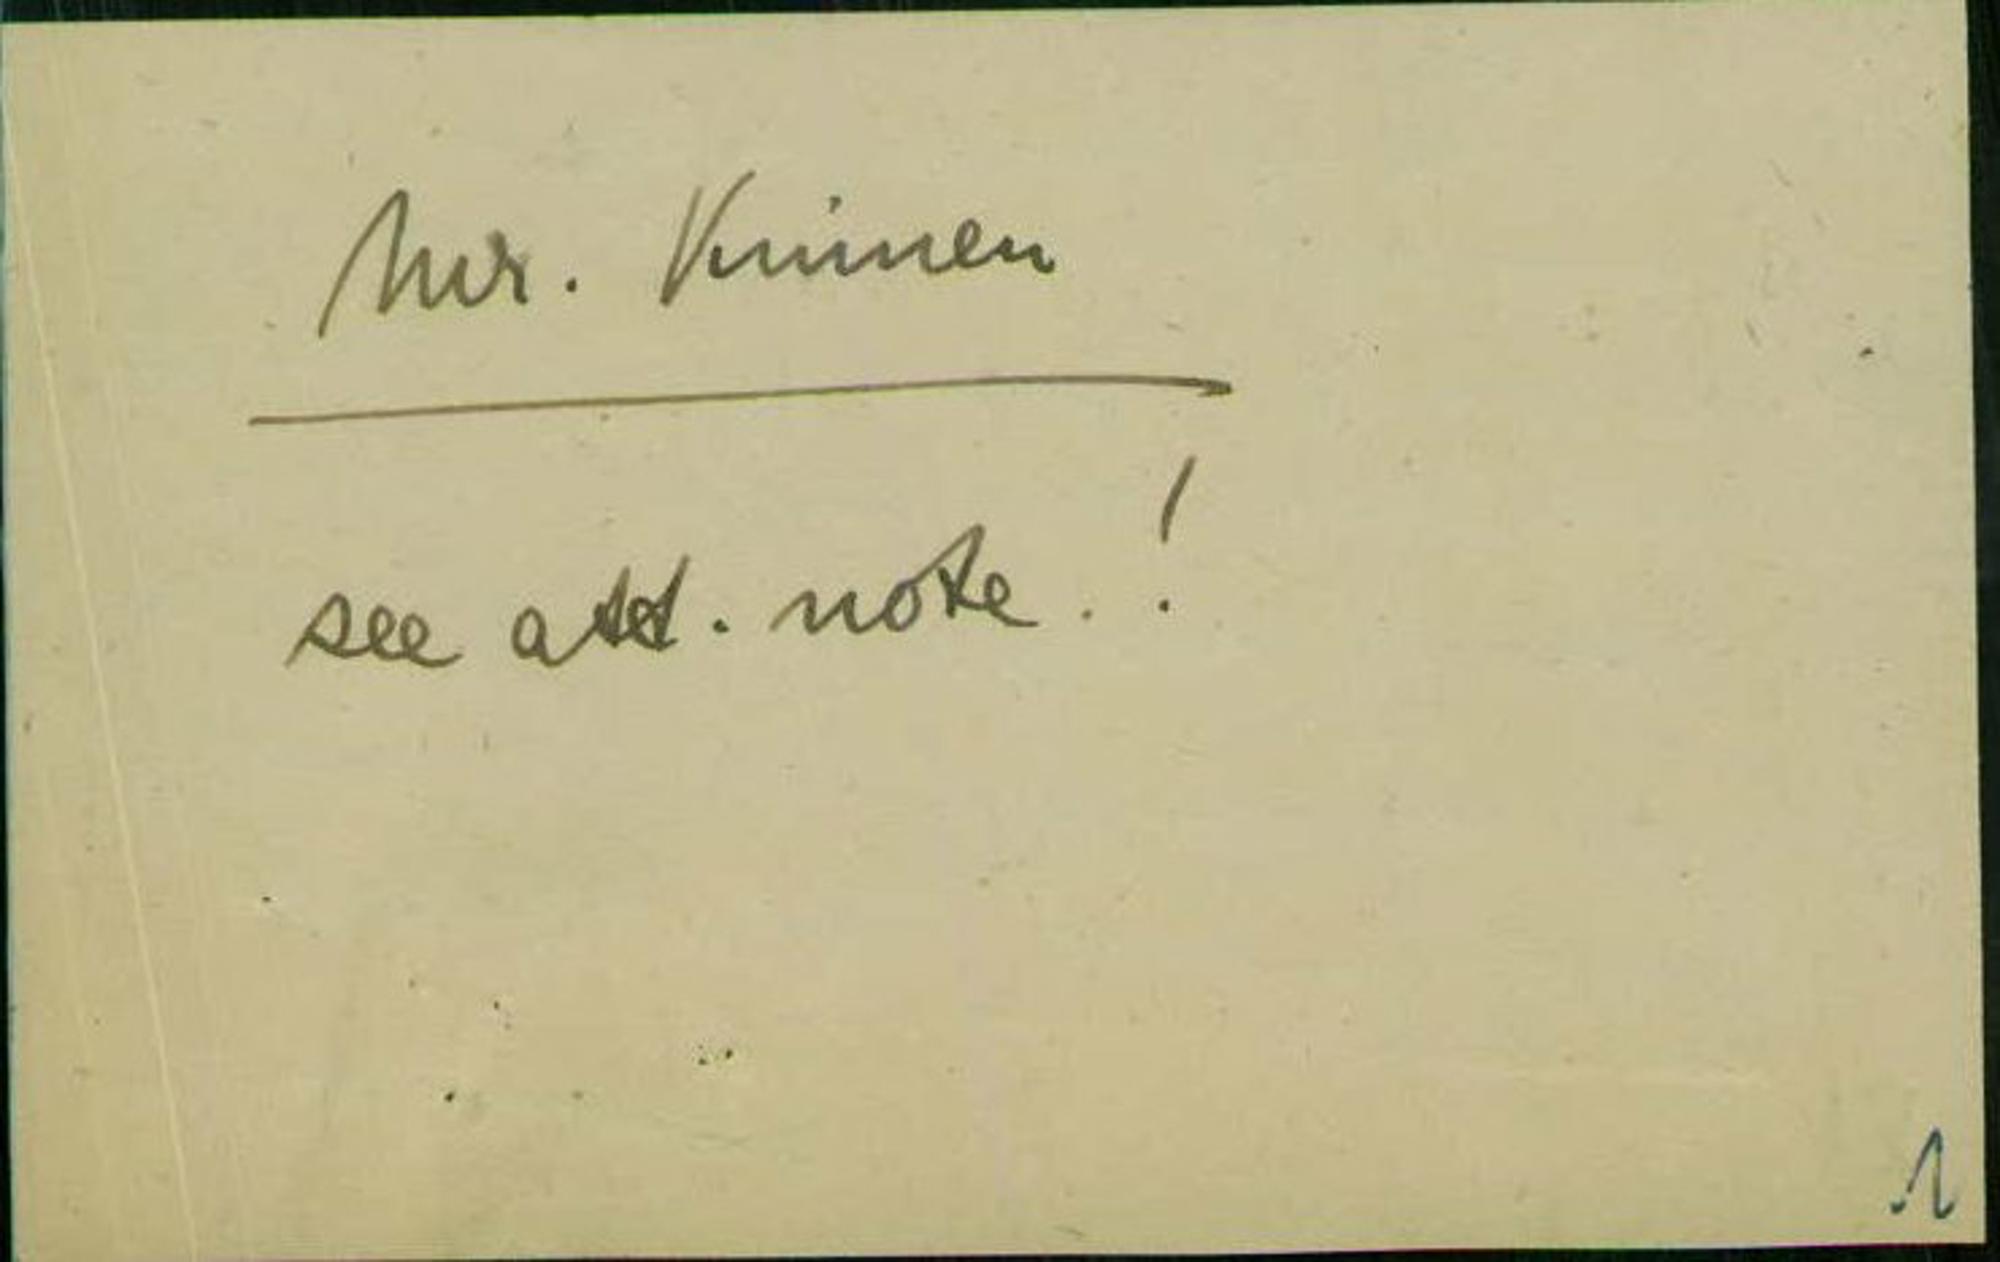 Mr. Kninen
see att. note . !
1